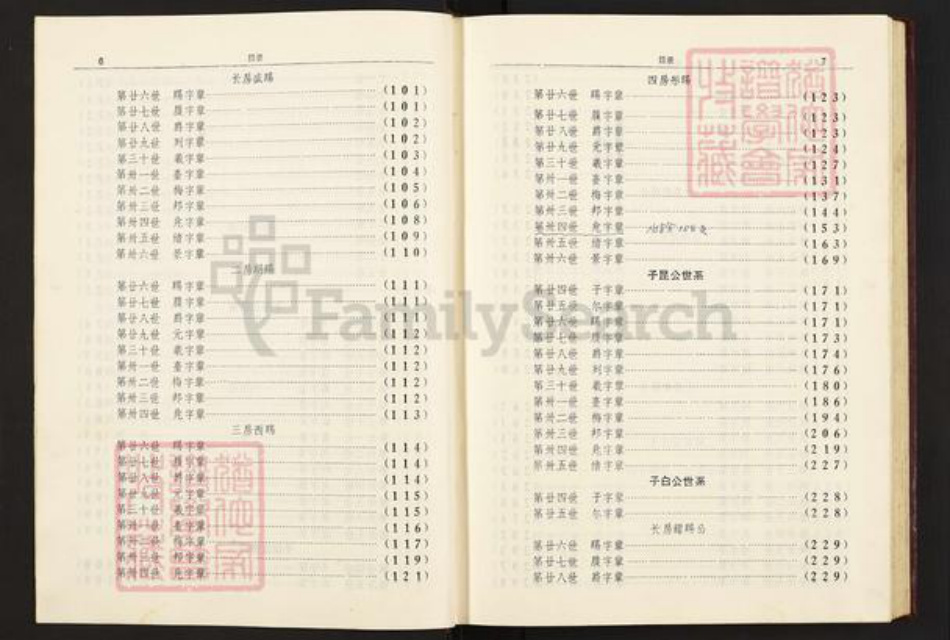 6
目录
长房成赐
第廿六世 赐字辈 (101)
第廿七世 履字辈 (101)
第廿八世 爵字辈 (102)
第廿九世 列字辈 (102)
第三十世 羲字辈 (103)
第卅一世 臺字辈 (104)
第卅二世 梅字辈 (105)
第卅三世 邦字辈 (106)
第卅四世 尧字辈 (108)
第卅五世 绪字辈 (109)
第卅六世 景字辈 (110)
二房 赐
第廿六世 赐字辈 (111)
第廿七世 履字辈 (111)
第廿八世 爵字辈 (111)
第廿九世 元字辈 (112)
第三十世 羲字辈 (112)
第卅一世 臺字辈 (112)
第卅二世 梅字辈 (112)
第卅三世 邦字辈 (112)
第卅四世 尧字辈 (113)
三房西赐
第廿六世 赐字辈 (114)
第廿七世 履字辈 (114)
第廿八世 爵字辈 (114)
第廿九世 元字辈 (115)
第三十世 羲字辈 (115)
第卅一世 臺字辈 (116)
第卅二世 梅字辈 (117)
第卅三世 邦字辈 (119)
第卅四世 尧字辈 (121)
目录
7
四房彤赐
第廿六世 赐字辈 (123)
第廿七世 履字辈 (123)
第廿八世 爵字辈 (123)
第廿九世 元字辈 (124)
第三十世 羲字辈 (127)
第卅一世 臺字辈 (131)
第卅二世 梅字辈 (137)
第卅三世 邦字辈 (144)
第卅四世 尧字辈 (153)
第卅五世 绪字辈 (163)
第卅六世 景字辈 (169)
子昆公世系
第廿四世 子字辈 (171)
第廿五世 尔字辈 (171)
第廿六世 赐字辈 (171)
第廿七世 履字辈 (173)
第廿八世 爵字辈 (174)
第廿九世 列字辈 (176)
第三十世 羲字辈 (180)
第卅一世 臺字辈 (186)
第卅二世 梅字辈 (194)
第卅三世 邦字辈 (206)
第卅四世 尧字辈 (219)
第卅五世 绪字辈 (227)
子白公世系
第廿四世 子字辈 (228)
第廿五世 尔字辈 (228)
长房 赐公
第廿六世 赐字辈 (229)
第廿七世 履字辈 (229)
第廿八世 爵字辈 (229)
FamilySearch